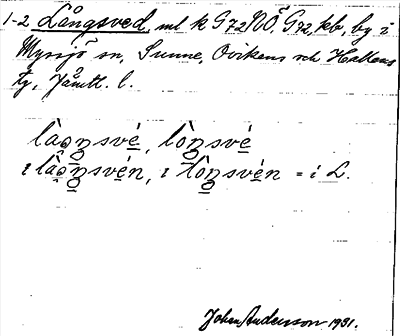 1-2 Långsved, ml k G72NÖ, G72, kb, by i
Myssjö sn, Sunne, Ovikens och Hallens
tg, Jämtl. l.
làɷŋsvé, lòŋsvé
ı làɷŋsvén, ı lòŋsvén = i L.
Johan Anderson 1931.